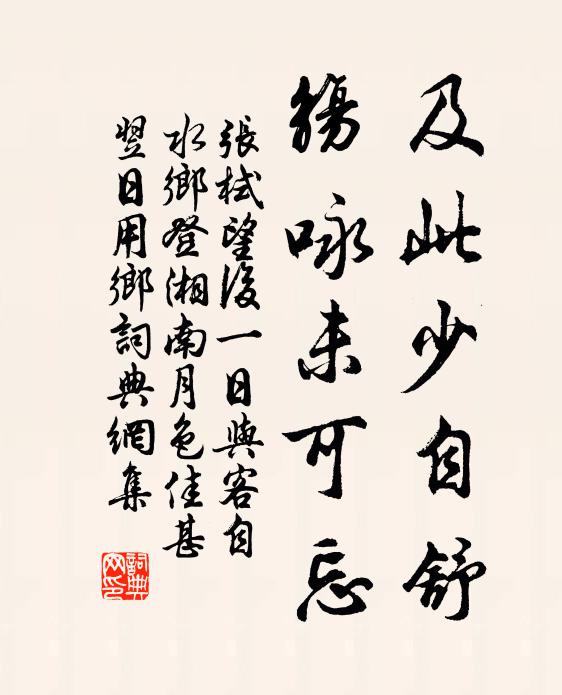 及此少自舒
觴咏未可忘
張栻望後一日與客自
水鄉登湘南月色佳甚
翌日用鄉詞典網集
詞典
网印